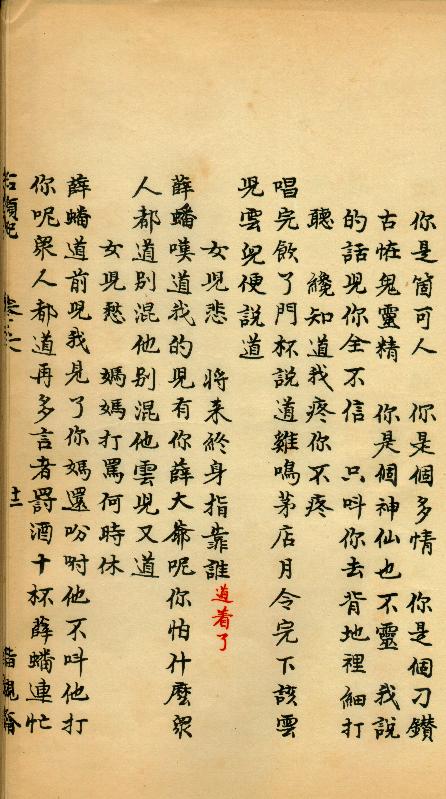 你是箇可人　你是個多情　你是個刁鑽
古恠鬼靈精　你是個神仙也不靈　我説
的話児你全不信　只呌你去背地裡細打
聴纔知道我疼你不疼
唱完飲了門杯説道雞鳴茅店月令完下該雲
児雲児便説道
女児悲　將来終身指靠誰道着了
薛蟠嘆道我的児有你薛大爺呢你怕什麽衆
人都道别混他别混他雲児又道
女児愁　媽媽打罵何時休
薛蟠道前児我見了你媽還吩咐他不呌他打
你呢衆人都道再多言者罸酒十杯薛蟠連忙
石頭記　卷　　十二　脂硯齋